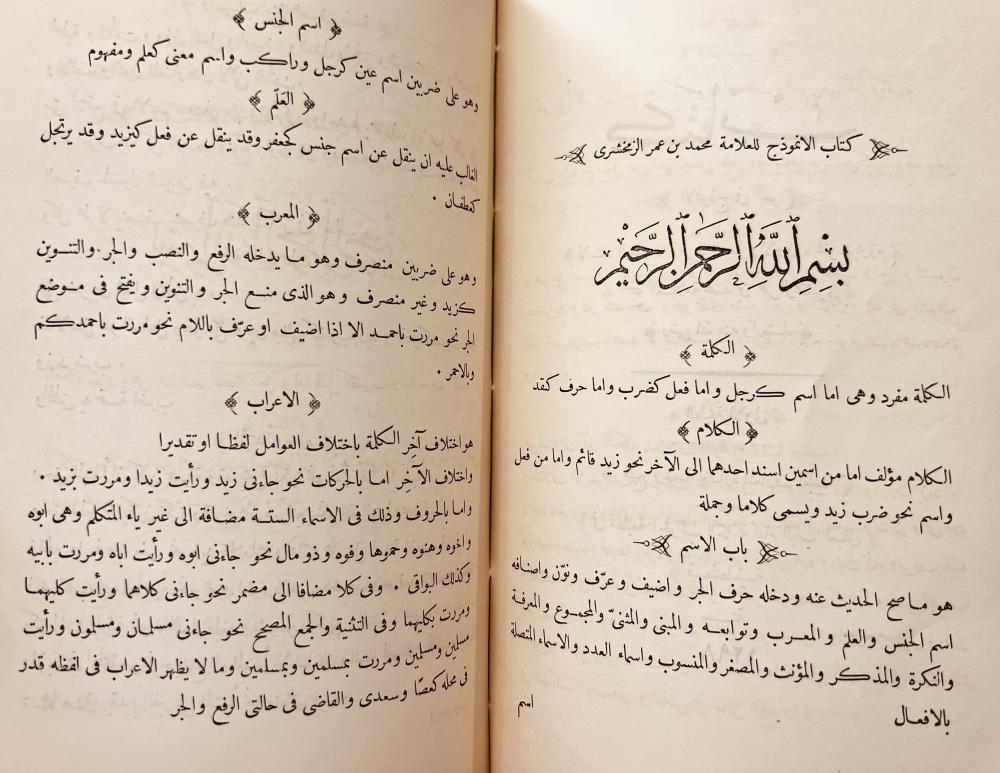 كتاب الانموذج للعلامة محمد بن عمر الزمخشرى
بِسْمِ ٱللَّهِ ٱلرَّحْمٰنِ ٱلرَّحِيْمِ
﴿ الكلمة ﴾
الكلمة مفرد وهى اما اسم كرجل واما فعل كضرب واما حرف كقد
﴿ الكلام ﴾
الكلام مؤلف اما من اسمين اسند احدهما الى الآخر نحو زيد قائم واما من فعل
واسم نحو ضرب زيد ويسمى كلاما وجملة
باب الاسم
هو ما صح الحديث عنه ودخله حرف الجر واضيف وعرّف ونوّن واصنافه
اسم الجنس والعلم والمعرب وتوابعه والمبنى والمثنىّ والمجموع والمعرفة
والنكرة والمذكر والمؤنث والمصغر والمنسوب واسماء العدد والاسماء المتصلة
بالافعال
اسم
﴿ اسم الجنس ﴾
وهو على ضربين اسم عين كرجل وراكب واسم معنى كعلم ومفهوم
﴿ العَلَم ﴾
الغالب عليه ان ينقل عن اسم جنس كجعفر وقد ينقل عن فعل كيزيد وقد يرتجل
كغطفان .
﴿ المعرب ﴾
وهو على ضربين منصرف وهو ما يدخله الرفع والنصب والجر والتنوين
كزيد وغير منصرف وهو الذى منع الجر والتنوين ويفتح فى موضع
الجر نحو مررت باحمد الا اذا اضيف او عرّف باللام نحو مررت باحمدكم
وبالاحمر .
﴿ الاعراب ﴾
هو اختلاف آخِر الكلمة باختلاف العوامل لفظا او تقديرا
واختلاف الآخِر اما بالحركات نحو جاءنى زيد ورأيت زيدا ومررت بزيد .
واما بالحروف وذلك فى الاسماء الستة مضافة الى غير ياء المتكلم وهى ابوه
واخوه وهنوه وحموها وفوه وذو مال نحو جاءنى ابوه ورأيت اباه ومررت بابيه
وكذلك البواقى . وفى كلا مضافا الى مضمر نحو جاءنى كلاهما ورأيت كليهما
ومررت بكليهما وفى التثنية والجمع المصحح نحو جاءنى مسلمان ومسلمون ورأيت
مسلمين ومسلمين ومررت بمسلمين وبمسلمين وما لا يظهر الاعراب فى لفظه قدر
فى محله كعصًا وسعدى والقاضى فى حالتى الرفع والجر